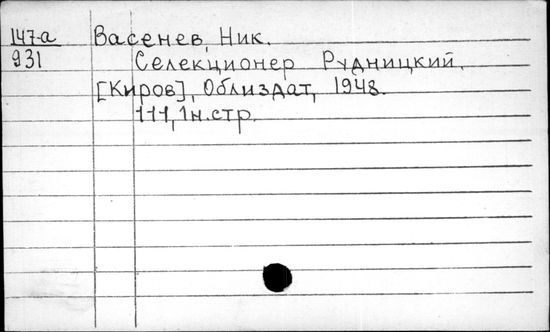 147-а Васенев, Ник.
931 Селекционер Рудницкий.
[Киров], Облиздат, 1948.
111, 1н.стр.